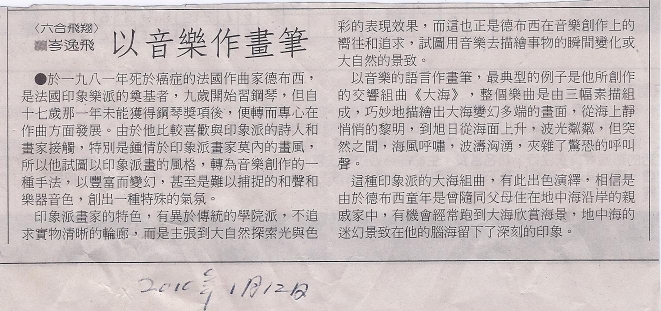 〈六合飛翔〉
岑逸飛
以音樂作畫筆
●於一九八一年死於癌症的法國作曲家德布西，
是法國印象樂派的奠基者，九歲開始習鋼琴，但自
十七歲那一年未能獲得鋼琴獎項後，便轉而專心在
作曲方面發展。由於他比較喜歡與印象派的詩人和
畫家接觸，特別是鍾情於印象派畫家莫內的畫風，
所以他試圖以印象派畫的風格，轉為音樂創作的一
種手法，以豐富而變幻，甚至是難以捕捉的和聲和
樂器音色，創出一種特殊的氣氛。
印象派畫家的特色，有異於傳統的學院派，不追
求實物清晰的輪廊，而是主張到大自然探索光與色
彩的表現效果，而這也正是德布西在音樂創作上的
嚮往和追求，試圖用音樂去描繪事物的瞬間變化或
大自然的景致。
以音樂的語言作畫筆，最典型的例子是他所創作
的交響組曲《大海》，整個樂曲是由三幅素描組
成，巧妙地描繪出大海變幻多端的畫面，從海上靜
悄悄的黎明，到旭日從海面上升，波光粼粼，但突
然之間，海風呼嘯，波濤洶湧，夾雜了驚恐的呼叫
聲。
這種印象派的大海組曲，有此出色演繹，相信是
由於德布西童年是曾隨同父母住在地中海沿岸的親
戚家中，有機會經常跑到大海欣賞海景，地中海的
迷幻景致在他的腦海留下了深刻的印象。
2010年1月12日